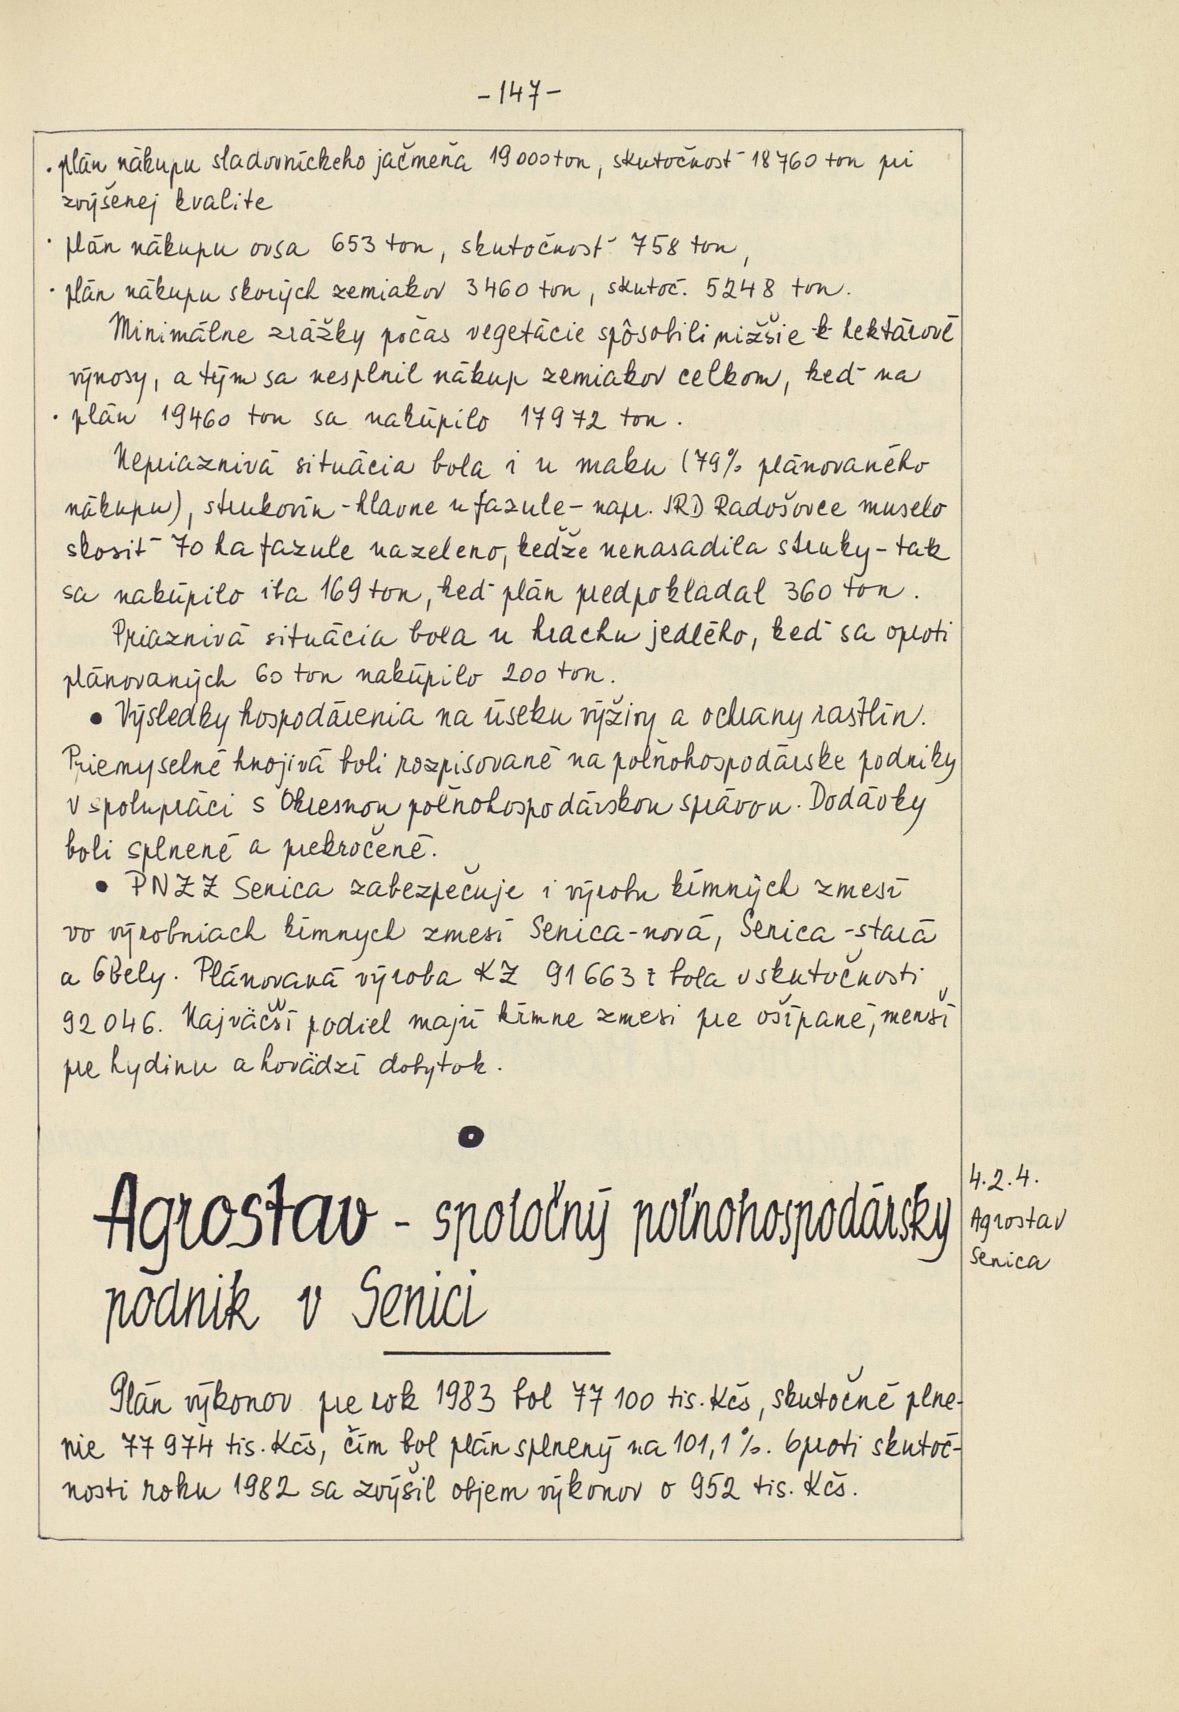 -147-
· plán nákupu sladovníckeho jačmeňa 19 000 ton, skutočnosť 18 760 ton pri
zvýšenej kvalite
· plán nákupu ovsa 653 ton, skutočnosť 758 ton,
· plán nákupu skorých zemiakov 3460 ton, skutoč. 5248 ton.
Minimálne zrážky počas vegetácie spôsobili nižšie hektárové
výnosy, a tým sa nesplnil nákup zemiakov celkom, keď na
· plán 19460 ton sa nakúpilo 17972 ton.
Nepriaznivá situácia bola i u maku (79% plánovaného
nákupu), strukovín - hlavne u fazule - napr. JRD Radošovce muselo
skosiť 70 ha fazule nazeleno, keďže nenasadila struky - tak
sa nakúpilo iba 169 ton, keď plán predpokladal 360 ton.
Priaznivá situácia bola u hrachu jedlého, keď sa oproti
plánovaných 60 ton nakúpilo 200 ton.
• Výsledky hospodárenia na úseku výživy a ochrany rastlín.
Priemyselné hnojivá boli rozpisované na poľnohospodárske podniky
v spolupráci s Okresnou poľnohospodárskou správou. Dodávky
boli splnené a prekročené.
• PNZZ Senica zabezpečuje i výrobu kŕmnych zmesí
vo výrobniach kŕmnych zmesí Senica-nová, Senica-stará
a Gbely. Plánovaná výroba KZ 91 663 t bola v skutočnosti
92 046. Najväčší podiel majú kŕmne zmesi pre ošípané, menší
pre hydinu a hovädzí dobytok.
Agrostav - spoločný poľnohospodársky
podnik v Senici
4.2.4.
Agrostav
Senica
Plán výkonov pre rok 1983 bol 77 100 tis. Kčs, skutočné plne-
nie 77 974 tis. Kčs, čím bol plán splnený na 101,1 %. Oproti skutoč-
nosti roku 1982 sa zvýšil objem výkonov o 952 tis. Kčs.